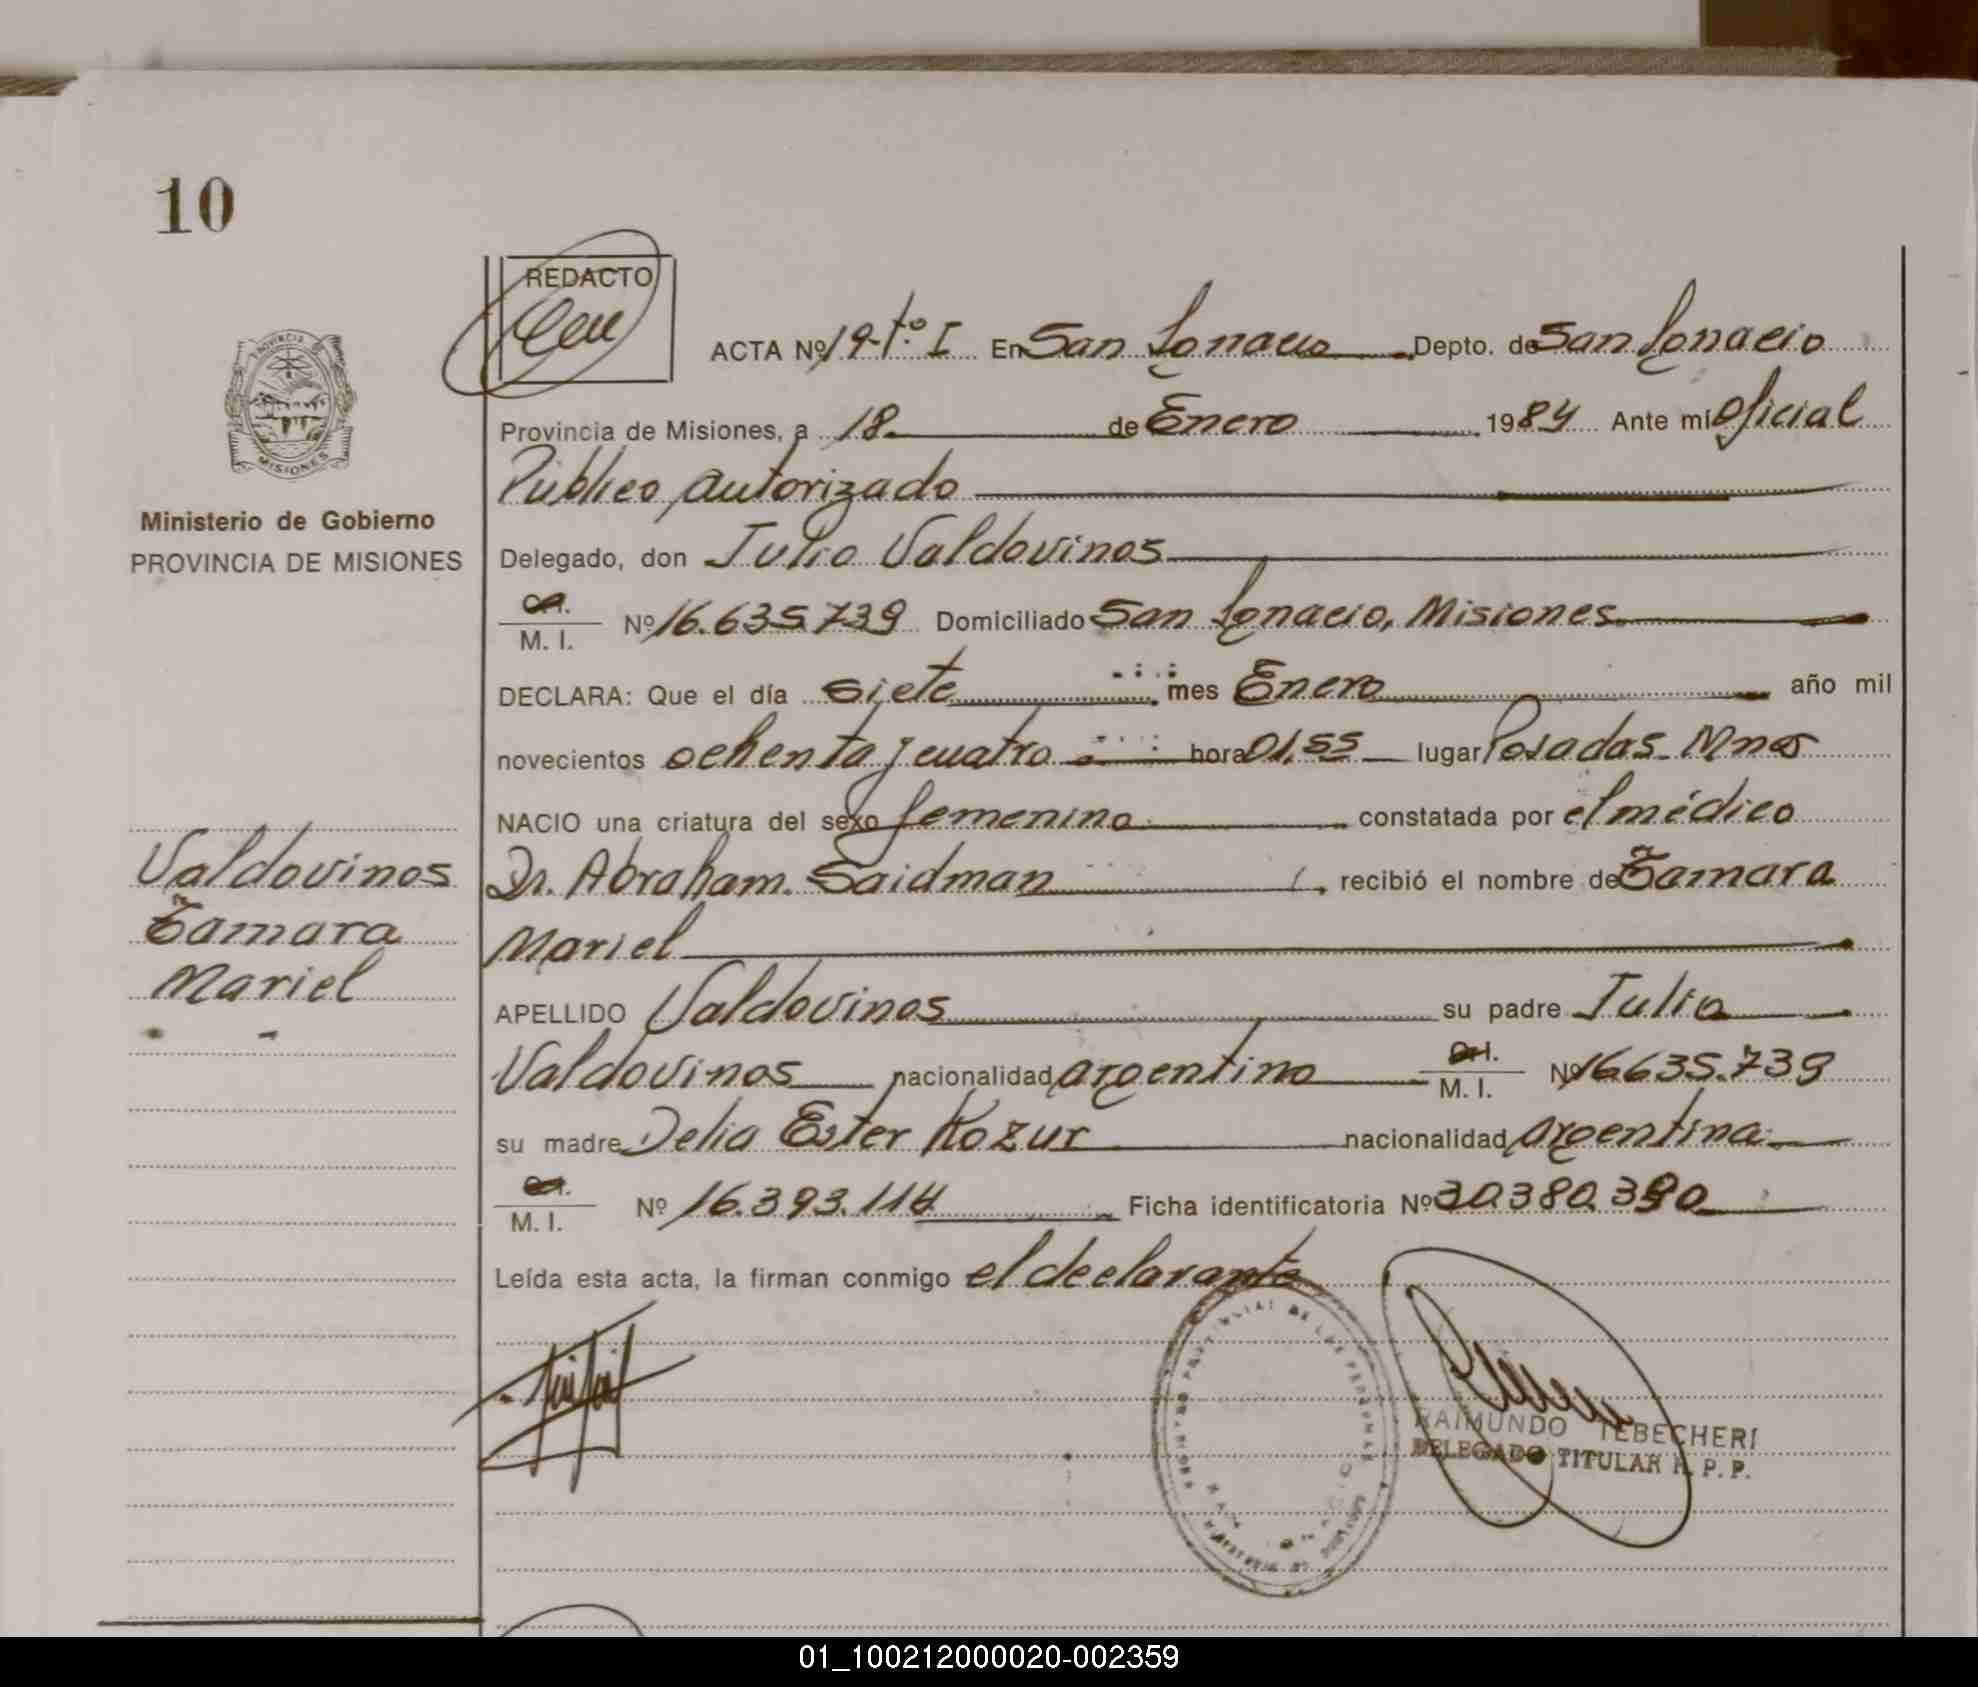 10
REDACTO
ACTA Nº 19-tº I En San Ignacio Depto. de San Ignacio
PROVINCIA
MISIONES
Provincia de Misiones, a 18 de Enero 1984 Ante mi Oficial
Público autorizado
Ministerio de Gobierno
PROVINCIA DE MISIONES
Delegado, don Julio Valdovinos
C.I.
M. I. Nº 16.635.739 Domiciliado San Ignacio, Misiones
DECLARA: Que el día siete mes Enero año mil
novecientos ochenta y cuatro hora 01,55 lugar Posadas-Mnes
NACIO una criatura del sexo femenino constatada por el médico
Dr. Abraham Saidman, recibió el nombre de Tamara
Mariel
Valdovinos
Tamara
Mariel
APELLIDO Valdovinos su padre Julio
Valdovinos nacionalidad argentino C.I.
M. I. Nº 16.635.739
su madre Delia Ester Kozur nacionalidad argentina
C.I.
M. I. Nº 16.393.114 Ficha identificatoria Nº 30.380.390
Leída esta acta, la firman conmigo el declarante
RAIMUNDO TEBECHERI
DELEGADO TITULAR R. P. P.
01_100212000020-002359